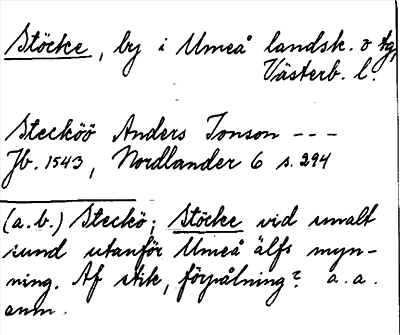 Stöcke, by i Umeå landsk. o tg,
Västerb. l.
Steckøö Anders Jonson - - -
Jb. 1543, Nordlander 6 s. 294
(a. b.) Steckö; Stöcke vid smalt
sund utanför Umeå älfs myn-
ning. Af stik, förpålning? a. a.
anm.